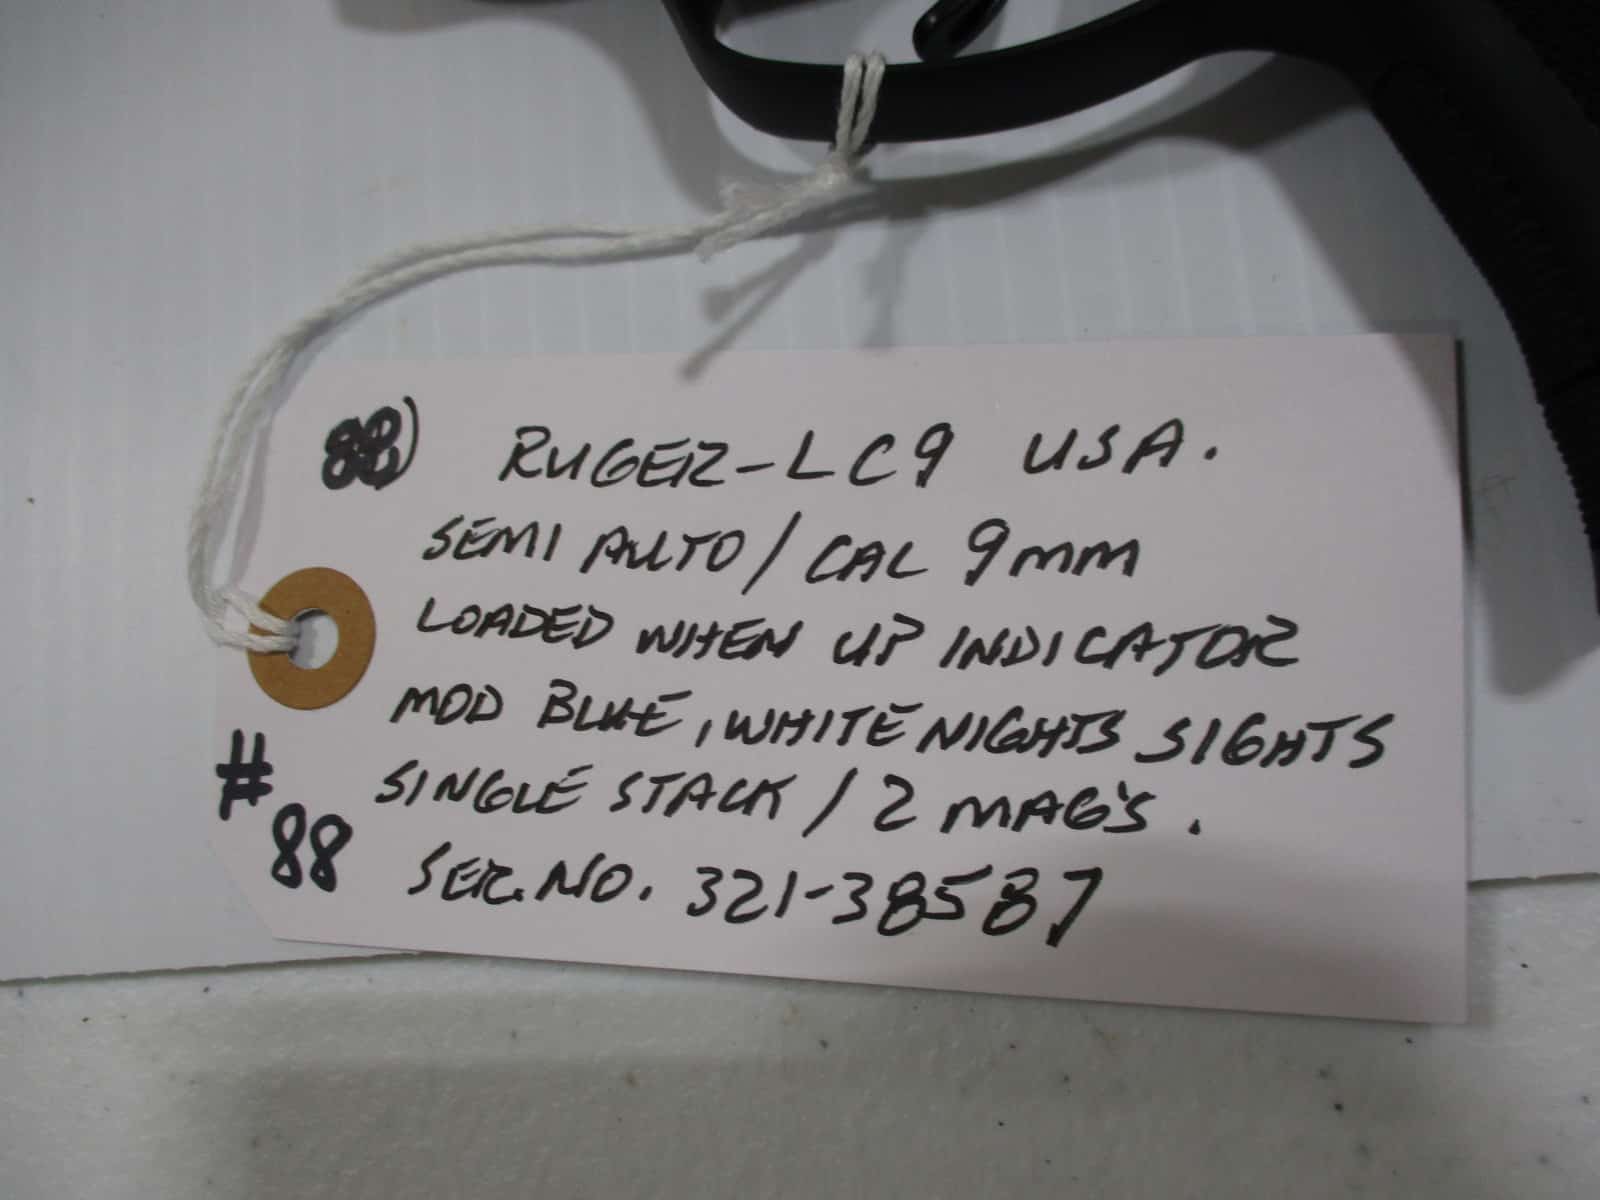 88) RUGER-LC9 USA.
SEMI AUTO / CAL 9mm
LOADED WHEN UP INDICATOR
MOD BLUE, WHITE NIGHTS SIGHTS
SINGLE STACK / 2 MAG'S.
SER. NO. 321-38587
# 88